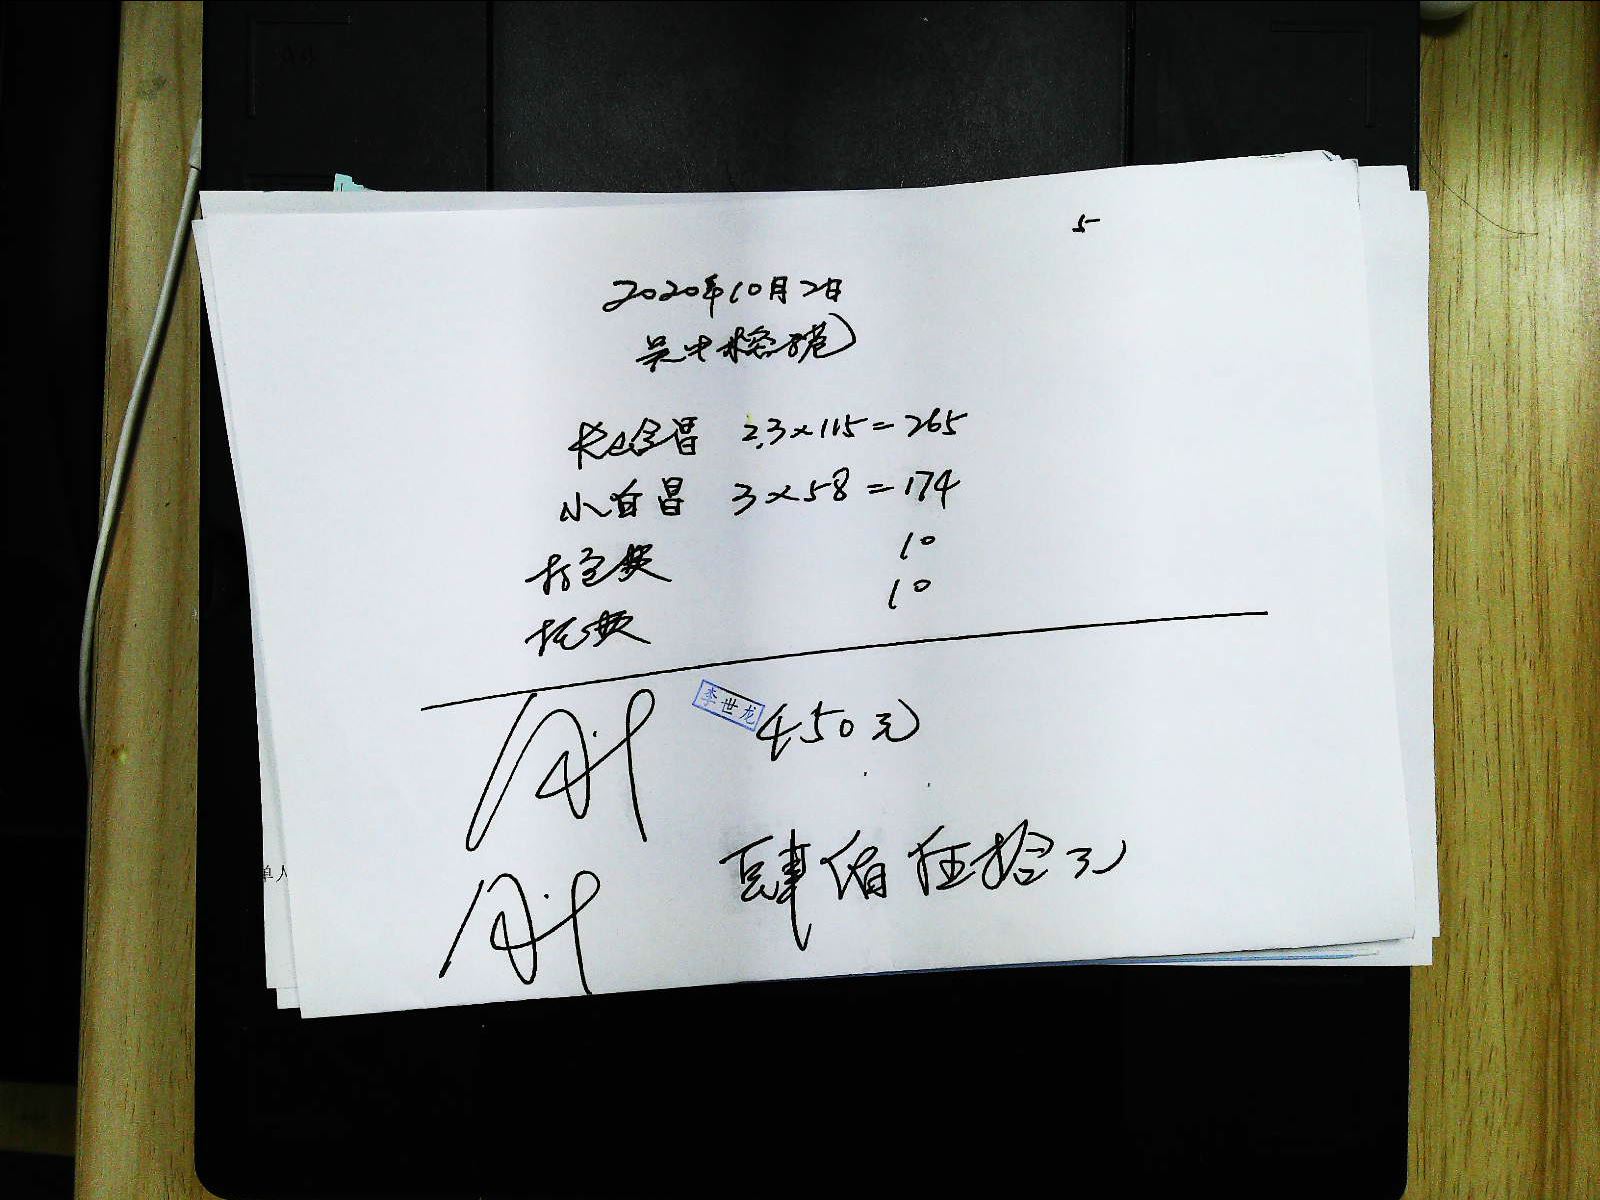 5
2020年10月2日
吴中
长山金昌 2.3×115=265
小白昌 3×58=174
打包费 10
10
李世龙
450元
肆佰伍拾元
单人